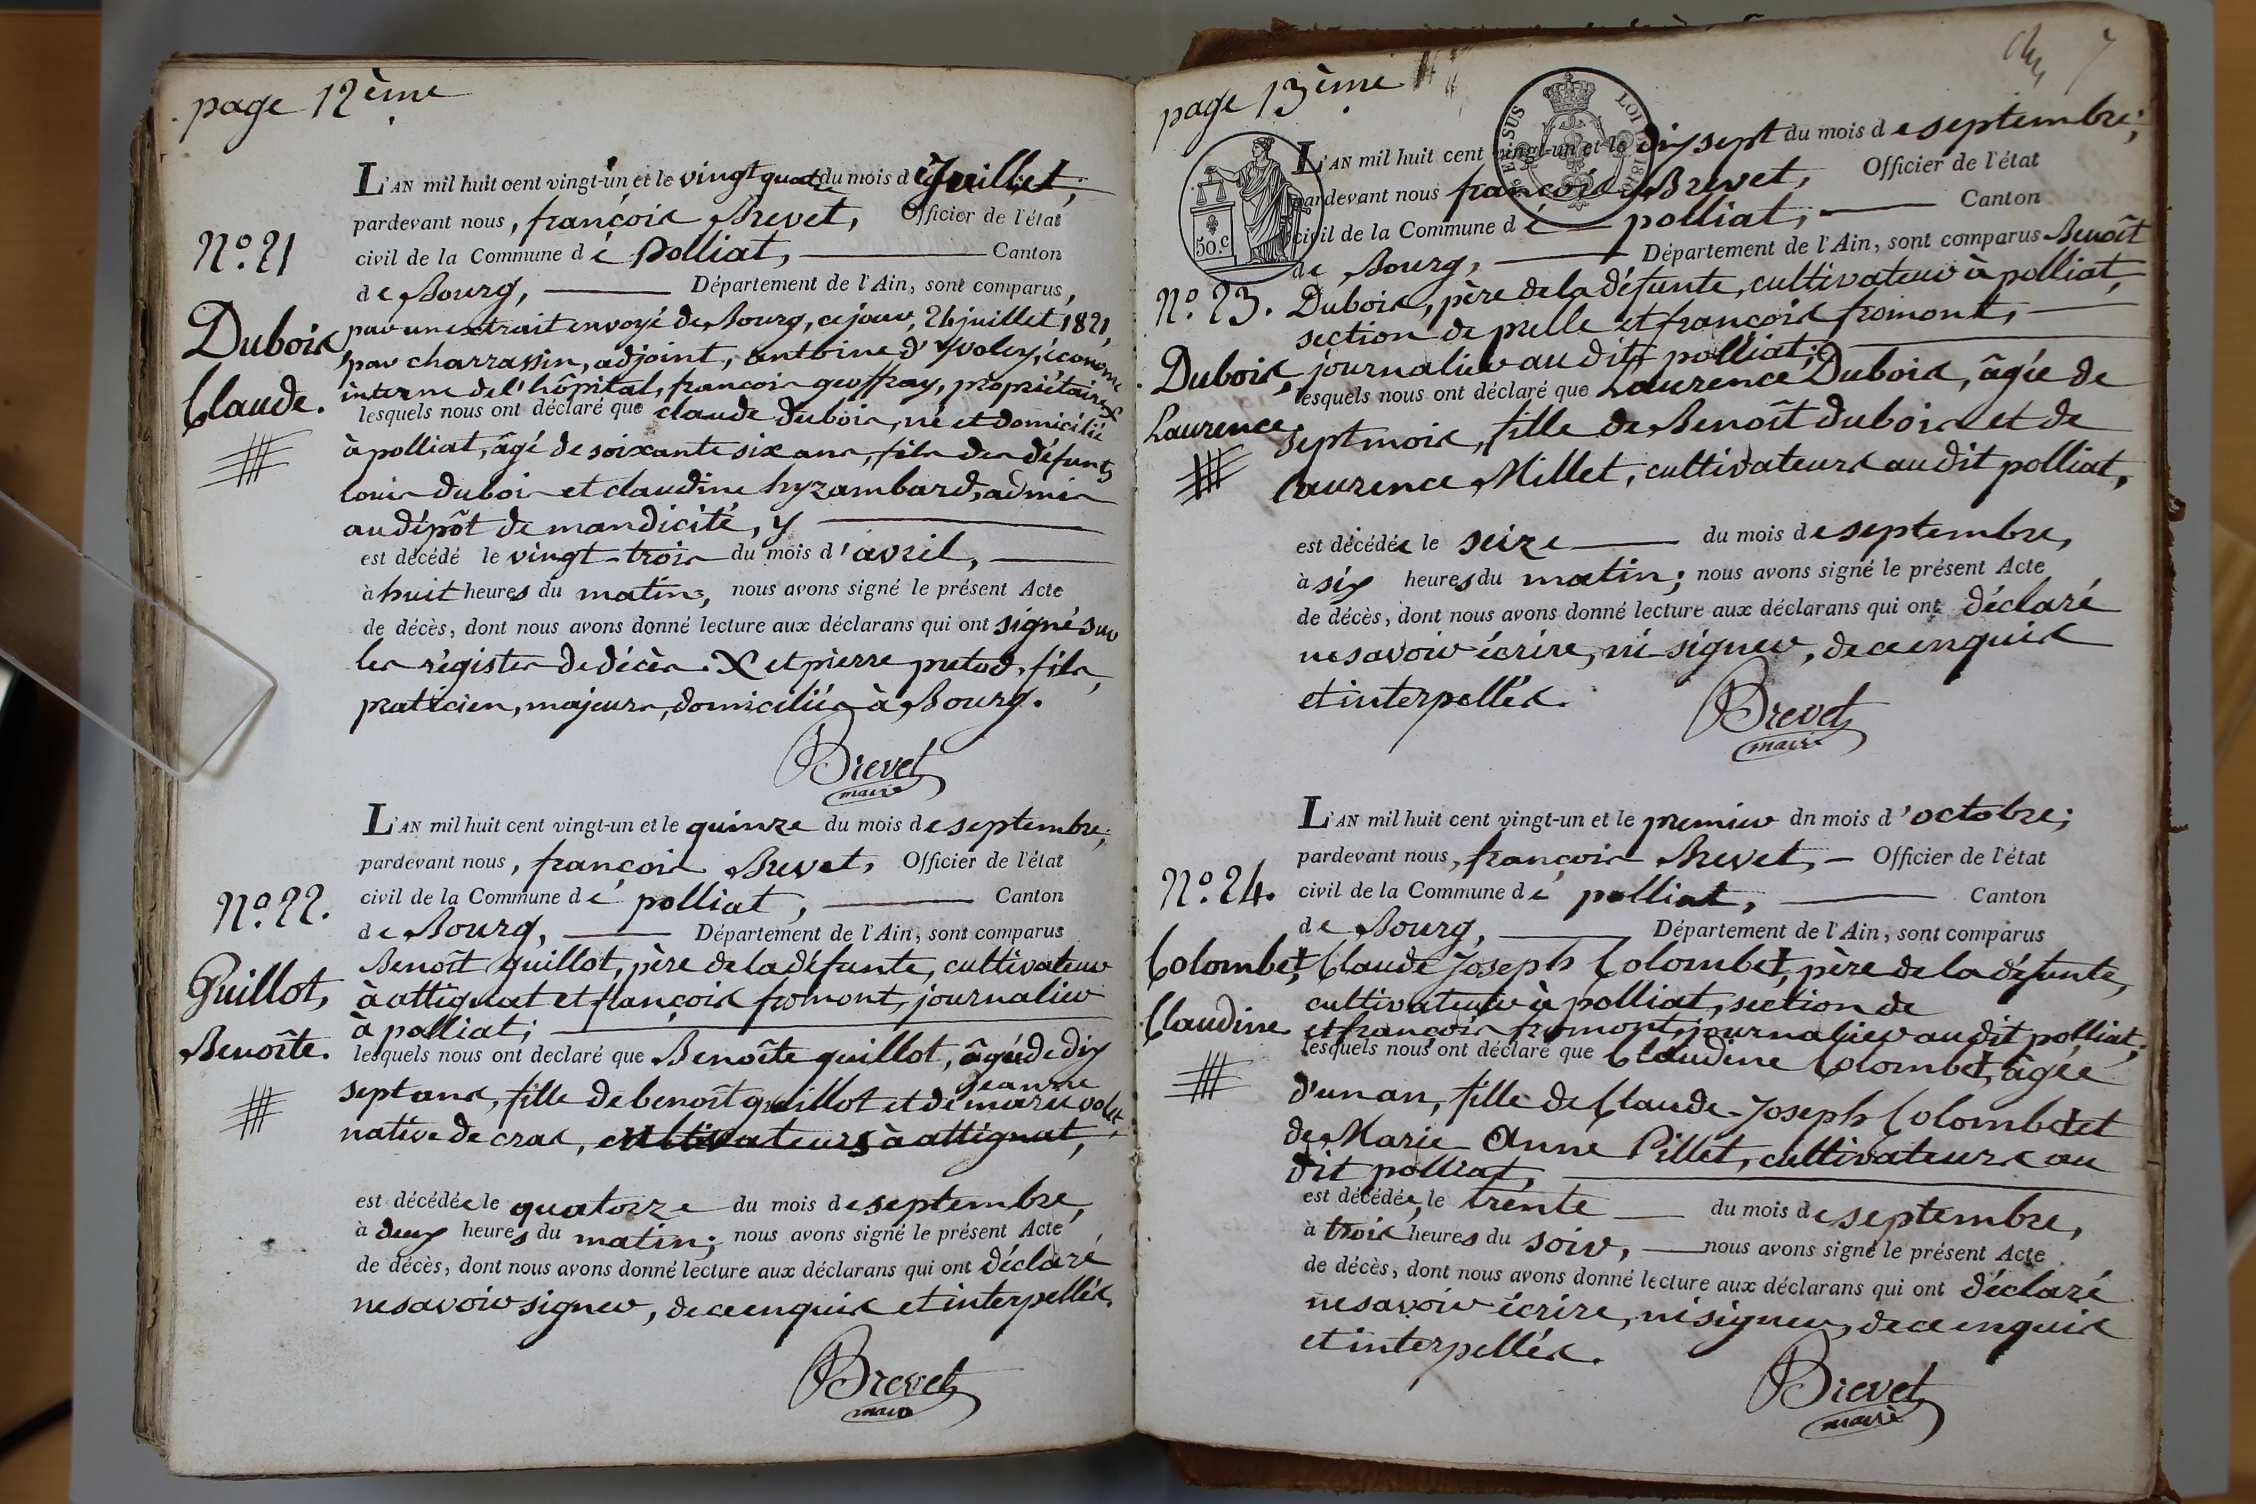 page 12ème
L'AN mil huit cent vingt-un et le vingt quatre du mois de Juillet,
pardevant nous, françois Brevet, Officier de l'état
civil de la Commune de Polliat, Canton
de Bourg, Département de l'Ain, sont comparus,
par un extrait envoyé de Bourg, ce jour, 24 juillet 1821,
par charrassin, adjoint, antoine d'yvoley, économe
interne de l'hôpital, françois geoffray, propriétaire X
lesquels nous ont déclaré que claude dubois, né et domicilié
à polliat, âgé de soixante six ans, fils des défunts
louis dubois et claudine hyzambard, admis
au dépôt de mandicité, y
est décédé le vingt-trois du mois d'avril,
à huit heures du matin, nous avons signé le présent Acte
de décès, dont nous avons donné lecture aux déclarans qui ont signé sur
les régistres de décès. X et pierre putod, fils,
praticien, majeurs, domiciliés à Bourg.
Brevet
maire
N.º 21
Dubois,
Claude.
L'AN mil huit cent vingt-un et le quinze du mois de septembre;
pardevant nous, françois Brevet, Officier de l'état
civil de la Commune de polliat, Canton
de Bourg, Département de l'Ain, sont comparus
Benoît guillot, père de la défunte, cultivateur
à attignat et françois fromont, journalier
à polliat;
lesquels nous ont declaré que Benoîte guillot, âgée de dix
sept ans, fille de benoît guillot et de jeanne marie volet
native de cras, cultivateurs à attignat,
est décédée le quatorze du mois de septembre,
à deux heures du matin; nous avons signé le présent Acte
de décès, dont nous avons donné lecture aux déclarans qui ont déclaré
ne savoir signer, de ce enquis et interpellés.
Brevet
maire
N.º 22.
Guillot,
Benoîte.
page 13ème
7
L'AN mil huit cent vingt-un et le dix sept du mois de septembre;
pardevant nous françois Brevet, Officier de l'état
civil de la Commune de polliat, Canton
de Bourg, Département de l'Ain, sont comparus Benoît
Dubois, père de la défunte, cultivateur à polliat,
section de prelle et françois fromont,
journalier au dit polliat;
lesquels nous ont déclaré que Laurence Dubois, âgée de
sept mois, fille de Benoît dubois et de
Laurence Millet, cultivateurs au dit polliat,
est décédée le seize du mois de septembre,
à six heures du matin; nous avons signé le présent Acte
de décès, dont nous avons donné lecture aux déclarans qui ont déclaré
ne savoir écrire, ni signer, de ce enquis
et interpellés.
Brevet
maire
50.c
LOI
1816
N.º 23.
Dubois,
Laurence.
L'AN mil huit cent vingt-un et le premier dn mois d'octobre;
pardevant nous, françois Brevet, Officier de l'état
civil de la Commune de polliat, Canton
de Bourg, Département de l'Ain, sont comparus
Claude Joseph Colombet, père de la défunte,
cultivateur à polliat, section de
et françois fromont, journalier au dit polliat;
lesquels nous ont déclaré que Claudine Colombet, âgée
d'un an, fille de Claude-Joseph Colombet et
de Marie-Anne Pillet, cultivateurs au
dit polliat,
est décédée le trente du mois de septembre,
à trois heures du soir, nous avons signé le présent Acte
de décès, dont nous avons donné lecture aux déclarans qui ont déclaré
ne savoir écrire, ni signer, de ce enquis
et interpellés.
Brevet
maire
N.º 24.
Colombet,
Claudine